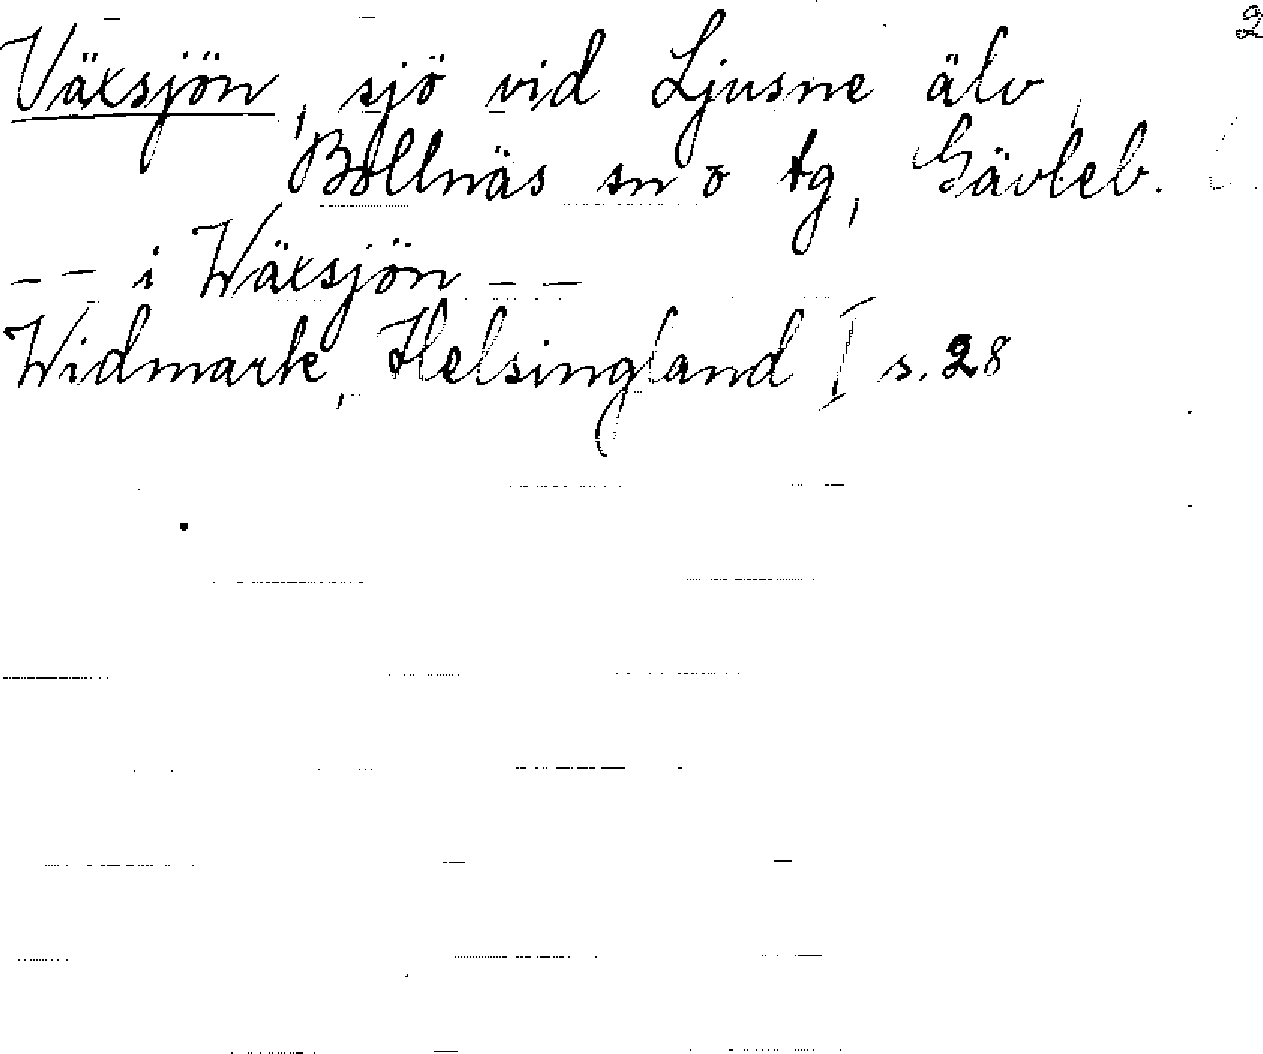 2
Växsjön, sjö vid Ljusne älv,
Bollnäs sn o tg, Gävleb. l.
-- i Wäxsjön --
Widmark, Helsingland I s. 28